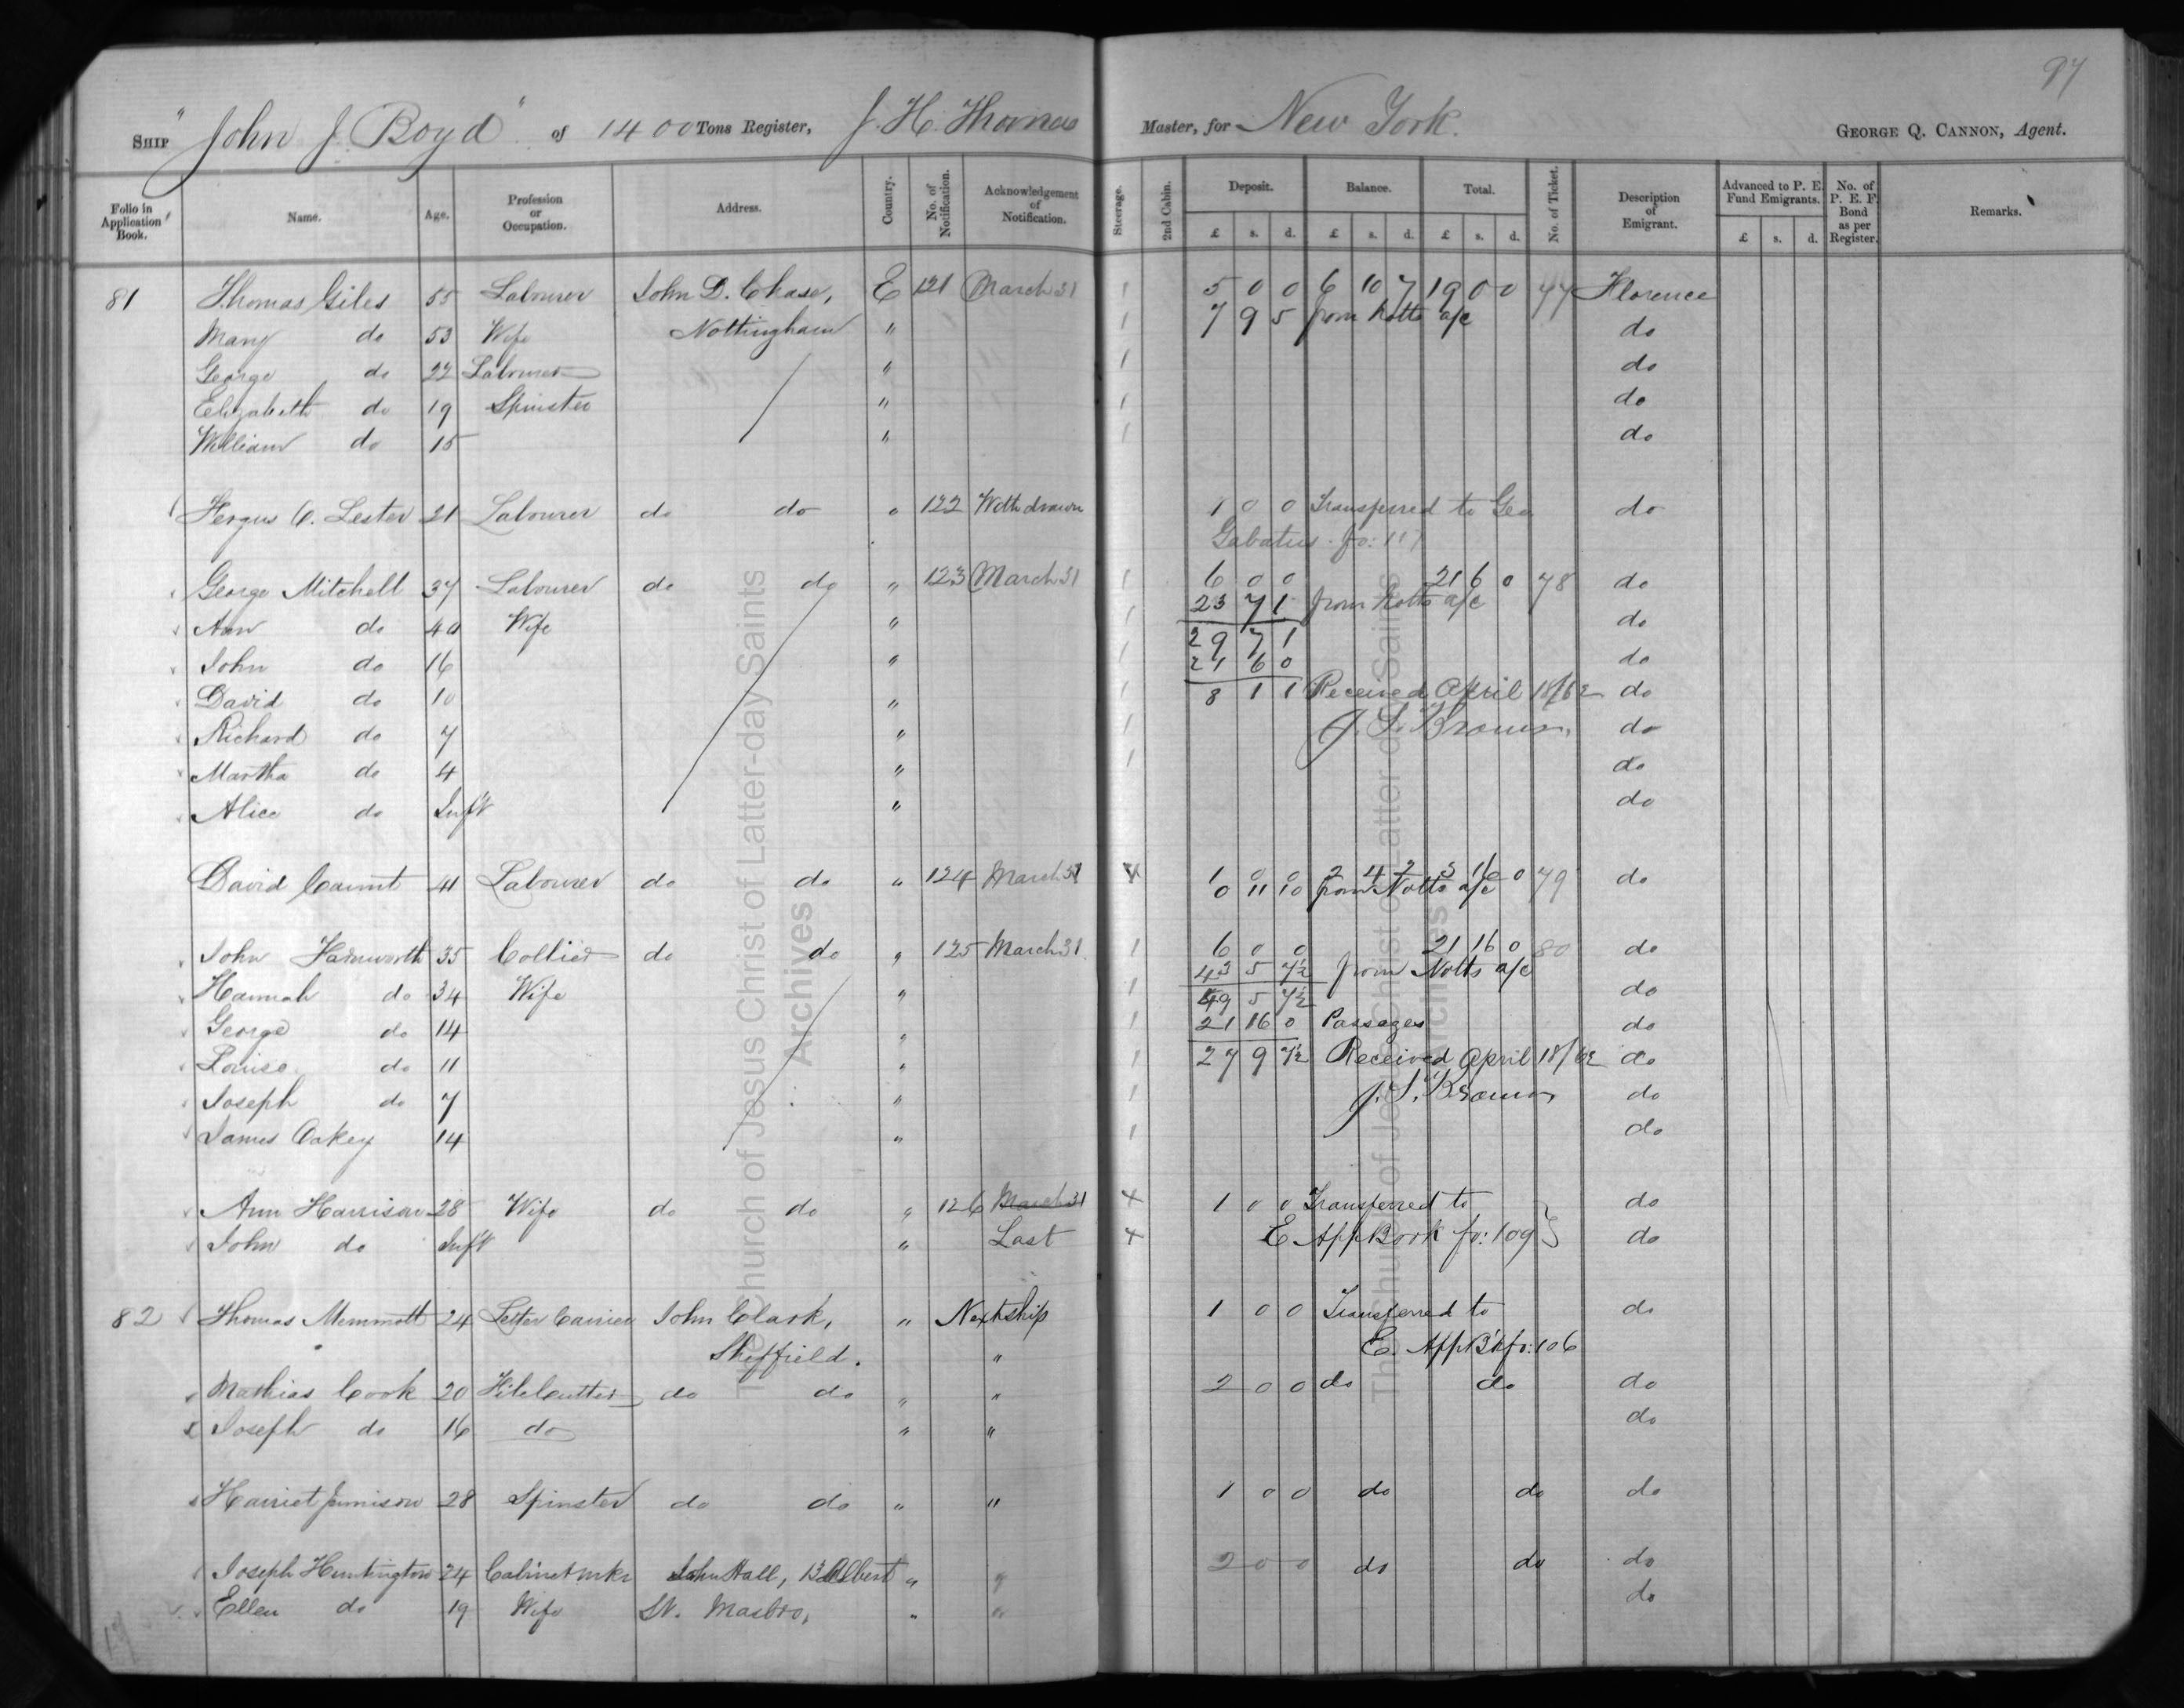 97
SHIP "John J. Boyd" of 1400 Tons Register, J. H. Thomas Master, for New York. GEORGE Q. CANNON, Agent.
Folio in Application Book. Name. Age. Profession or Occupation. Address. Country. No. of Notification. Acknowledgement of Notification. Steerage. 2nd Cabin. Deposit. Balance. Total. No. of Ticket. Description of Emigrant. Advanced to P. E. Fund Emigrants. No. of P. E. F. Bond as per Register. Remarks.
£ s. d. £ s. d. £ s. d. £ s. d.
81 Thomas Giles 55 Labourer John D. Chase, E 121 March 31 1 5 0 0 6 10 7 19 0 0 77 Florence
Mary do 53 Wife Nottingham " 1 7 9 5 from Notts a/c do
George do 22 Labourer " 1 do
Elizabeth do 19 Spinster " 1 do
William do 15 " 1 do
Fergus O. Lester 21 Labourer do do " 122 Withdrawn 1 0 0 Transferred to Geo do
fo: 117
George Mitchell 37 Labourer do do " 123 March 31 1 6 0 0 21 6 0 78 do
Ann do 40 Wife " 1 23 7 1 from Notts a/c do
29 7 1
John do 16 " 1 21 6 0 do
David do 10 " 1 8 1 1 Received April 18/62 do
Richard do 7 " 1 J. S. Brown do
Martha do 4 " 1 do
Alice do Inft " do
David Caunt 41 Labourer do do " 124 March 31 1 0 0 2 4 2 3 16 0 79 do
0 11 10 from Notts a/c
John Farnworth 35 Collier do do " 125 March 31 1 6 0 0 21 16 0 80 do
43 5 7½ from Notts a/c
Hannah do 34 Wife " 1 49 5 7½ do
George do 14 " 1 21 16 0 Passages do
Louisa do 11 " 1 27 9 7½ Received April 18/62 do
Joseph do 7 " 1 J. S. Brown do
James Oakey 14 " 1 do
Ann Harrison 28 Wife do do " 126 March 31 x 1 0 0 Transferred to do
John do Inft " Last x E App Book fo: 109 do
82 Thomas Memmott 24 Letter Carrier John Clark, " Next ship 1 0 0 Transferred to do
Sheffield. " E. App B'k fo: 106
Mathias Cook 20 File Cutter do do " " 2 0 0 do do do
Joseph do 16 do " " do
Harriet Jennison 28 Spinster do do " " 1 0 0 do do do
Joseph Huntington 24 Cabinet mkr John Hall, 13 Albert " " 2 0 0 do do do
Ellen do 19 Wife St. Masbro, " " do
The Church of Jesus Christ of Latter-day Saints
Archives
The Church of Jesus Christ of Latter-day Saints
Archives